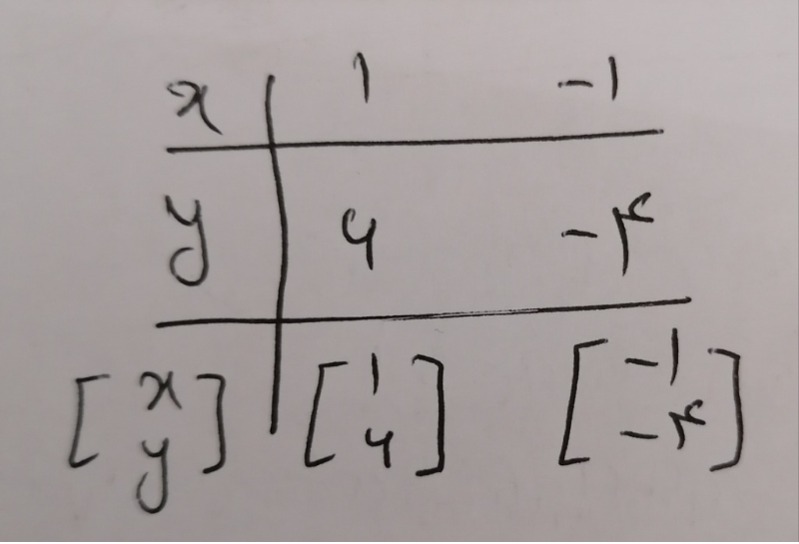 x ۱ -۱
y ۶ -۴
[x y] [۱ ۶] [-۱ -۴]